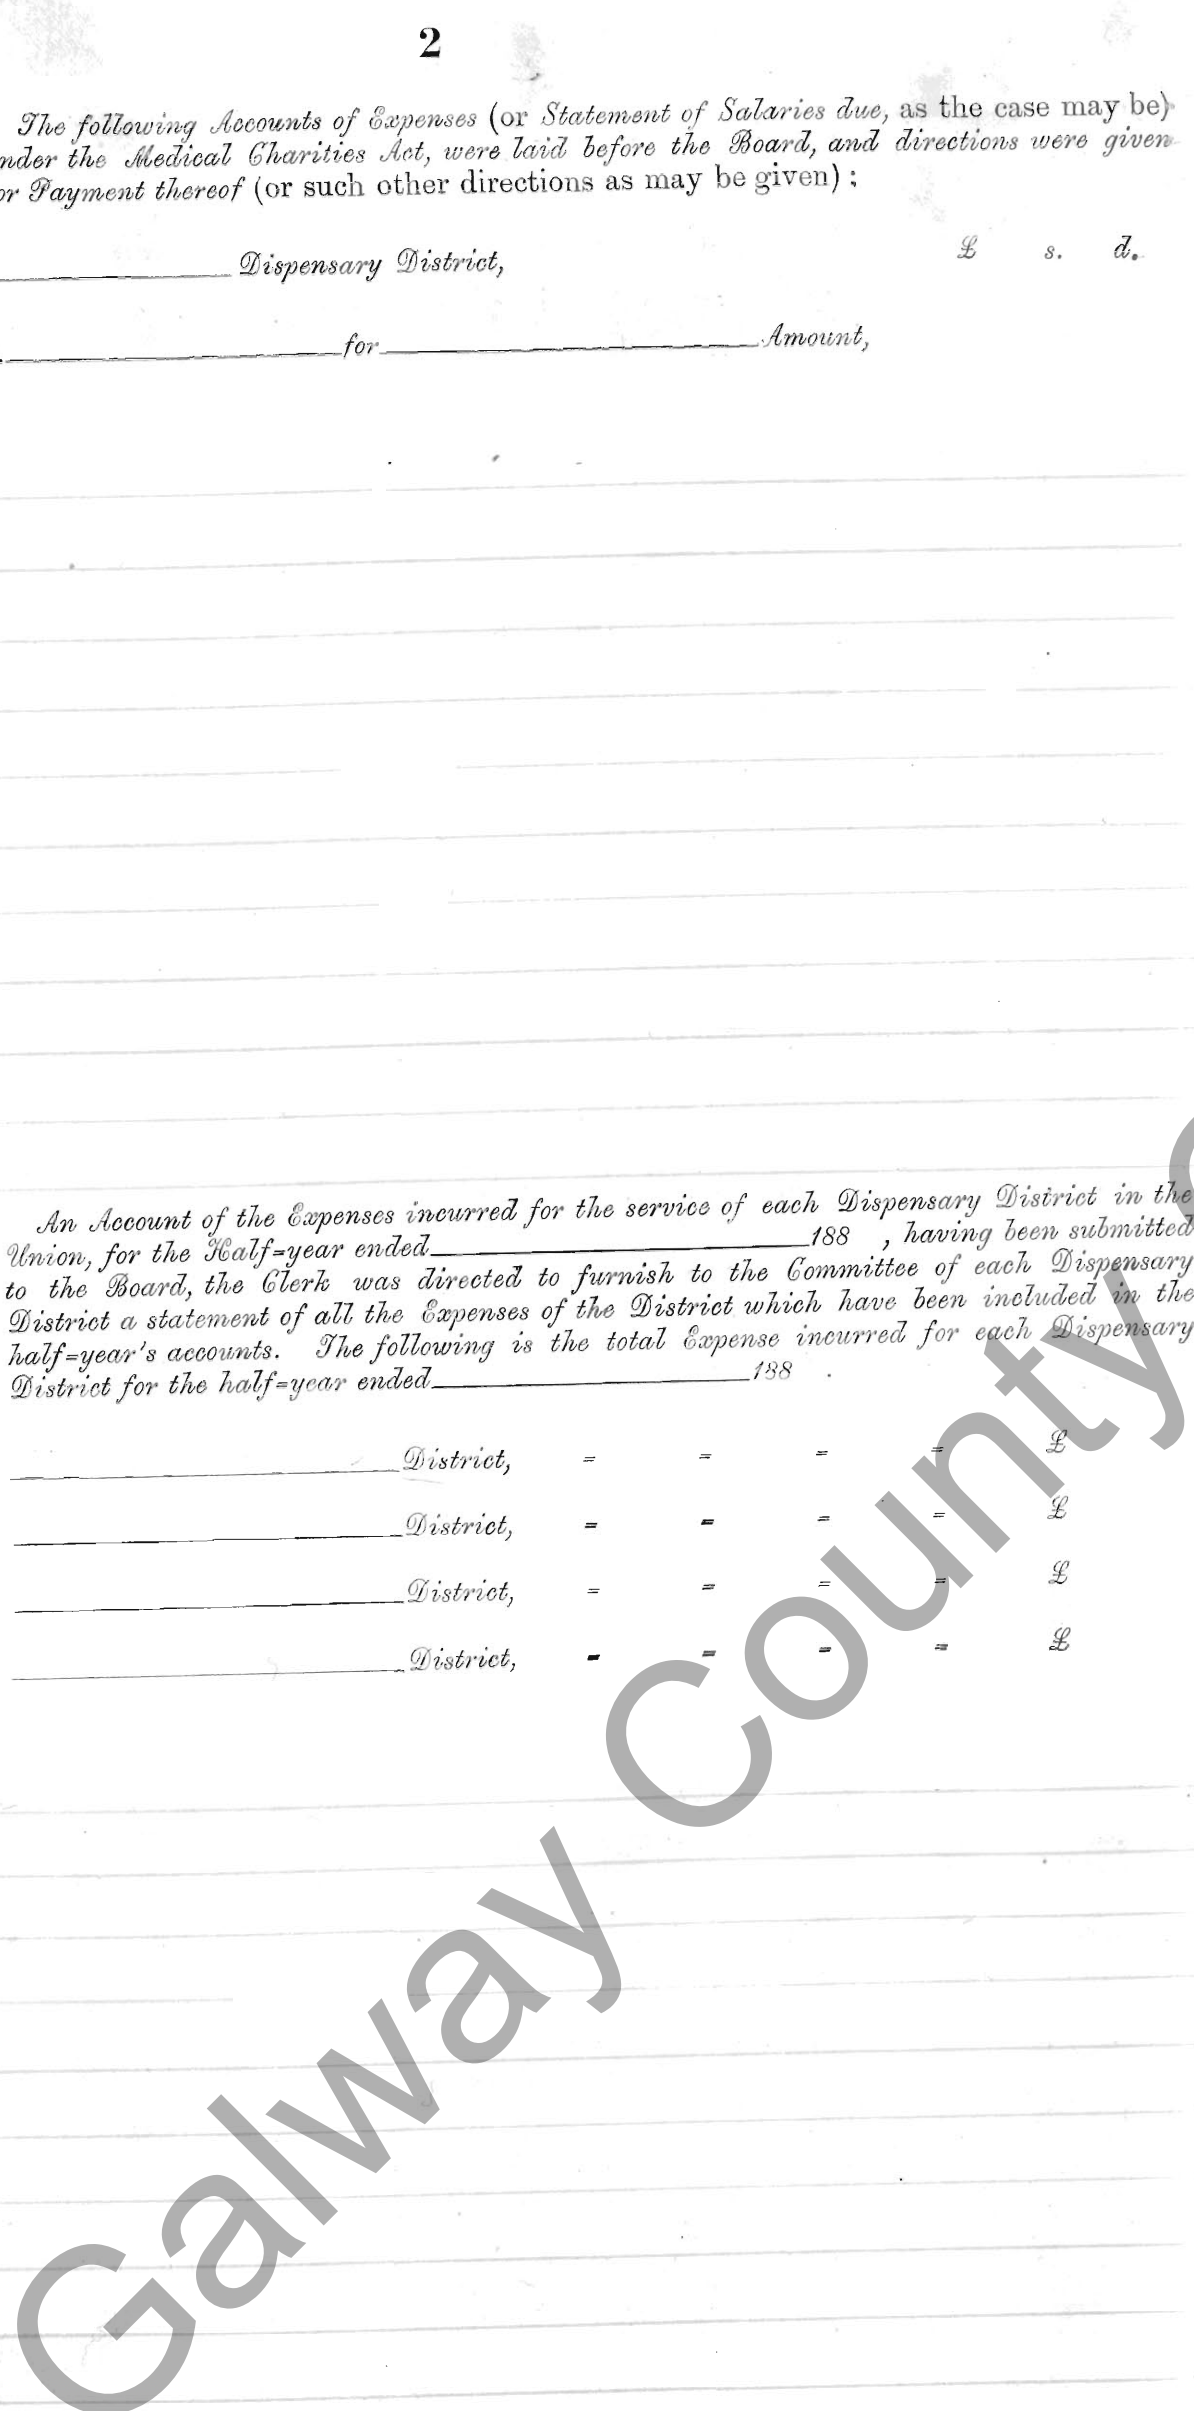 2
The following Accounts of Expenses (or Statement of Salaries due, as the case may be)
nder the Medical Charities Act, were laid before the Board, and directions were given
or Payment thereof (or such other directions as may be given) ;
Dispensary District, £ s. d.
for Amount,
An Account of the Expenses incurred for the service of each Dispensary District in the
Union, for the Half=year ended 188 , having been submitted
to the Board, the Clerk was directed to furnish to the Committee of each Dispensary
District a statement of all the Expenses of the District which have been included in the
half=year's accounts. The following is the total Expense incurred for each Dispensary
District for the half=year ended 188 .
District, = = = = £
District, = = = = £
District, = = = = £
District, = = = = £
Galway County